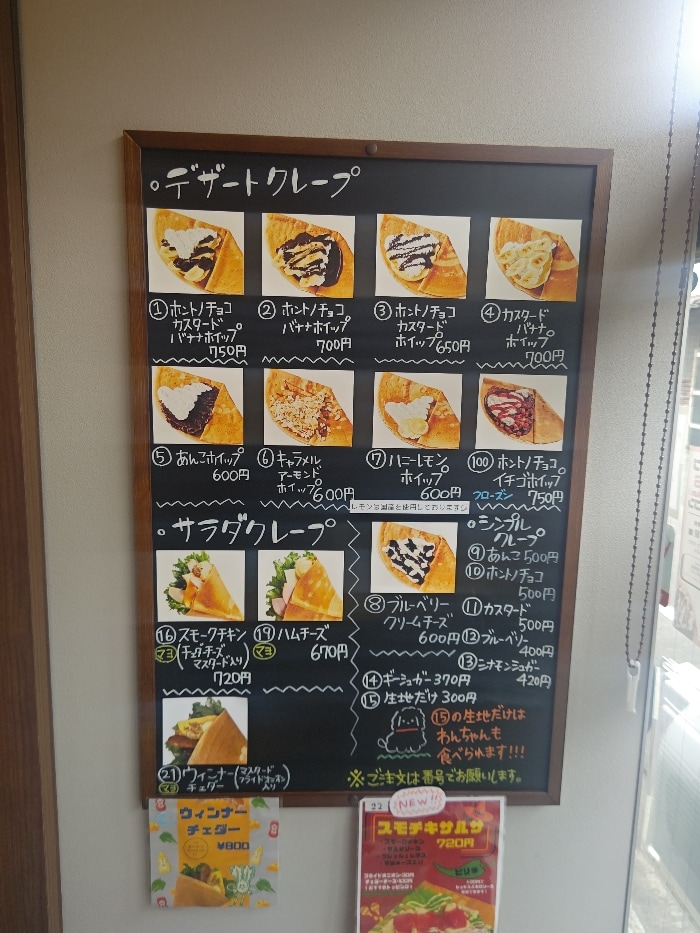 デザートクレープ
① ホントノチョコ
カスタード
バナナホイップ
750円
② ホントノチョコ
バナナホイップ
700円
③ ホントノチョコ
カスタード
ホイップ 650円
④ カスタード
バナナ
ホイップ
700円
⑤ あんこホイップ
600円
⑥ キャラメル
アーモンド
ホイップ 600円
⑦ ハニーレモン
ホイップ
600円
レモンは国産を使用しております
100 ホントノチョコ
イチゴホイップ
フローズン 750円
サラダクレープ
⑯ スモークチキン
マヨ (チェダーチーズ
マスタード入り)
720円
⑲ ハムチーズ
マヨ 670円
㉑ ウィンナー (マスタード
フライドオニオン
入り)
マヨ チェダー
⑧ ブルーベリー
クリームチーズ
600円
シンプル
クレープ
⑨ あんこ 500円
⑩ ホントノチョコ
500円
⑪ カスタード
500円
⑫ ブルーベリー
400円
⑬ シナモンシュガー
420円
⑭ ギーシュガー 370円
⑮ 生地だけ 300円
⑮の生地だけは
わんちゃんも
食べられます!!!
※ご注文は番号でお願いします。
ウィンナー
チェダー
¥800
22
NEW!!
スモチキサルサ
720円